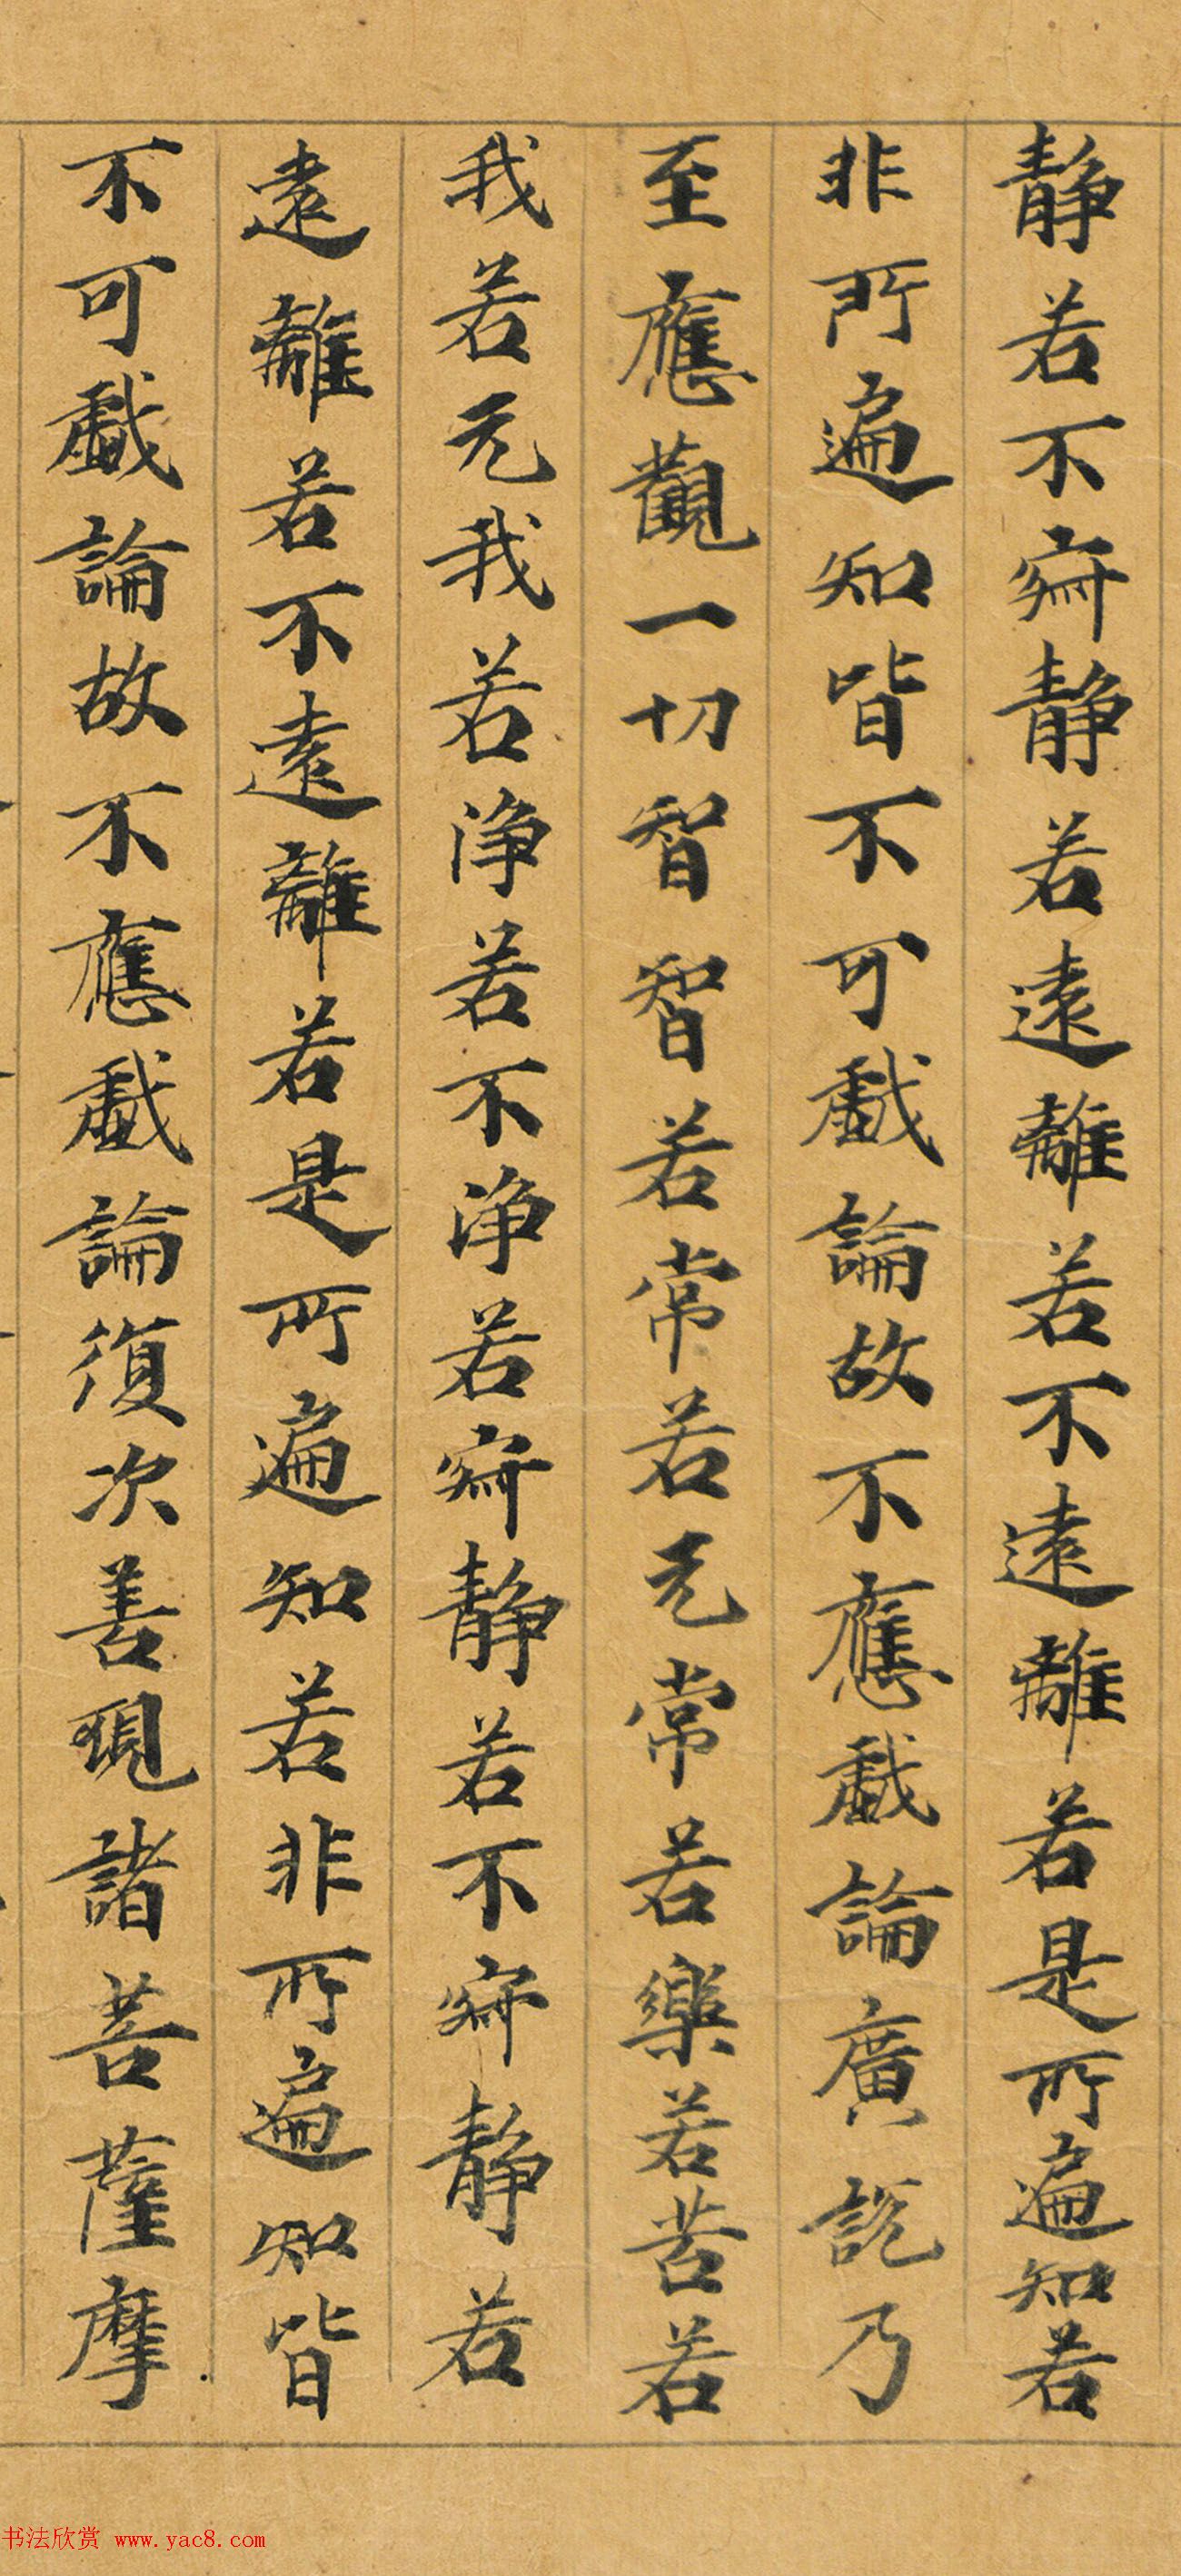 静若不寂静若遠離若不遠離若是所遍知若
非所遍知皆不可戲論故不應戲論廣說乃
至應觀一切智智若常若无常若樂若苦若
我若无我若淨若不淨若寂静若不寂静若
遠離若不遠離若是所遍知若非所遍知皆
不可戲論故不應戲論復次善現諸菩薩摩
书法欣赏 www.yac8.com